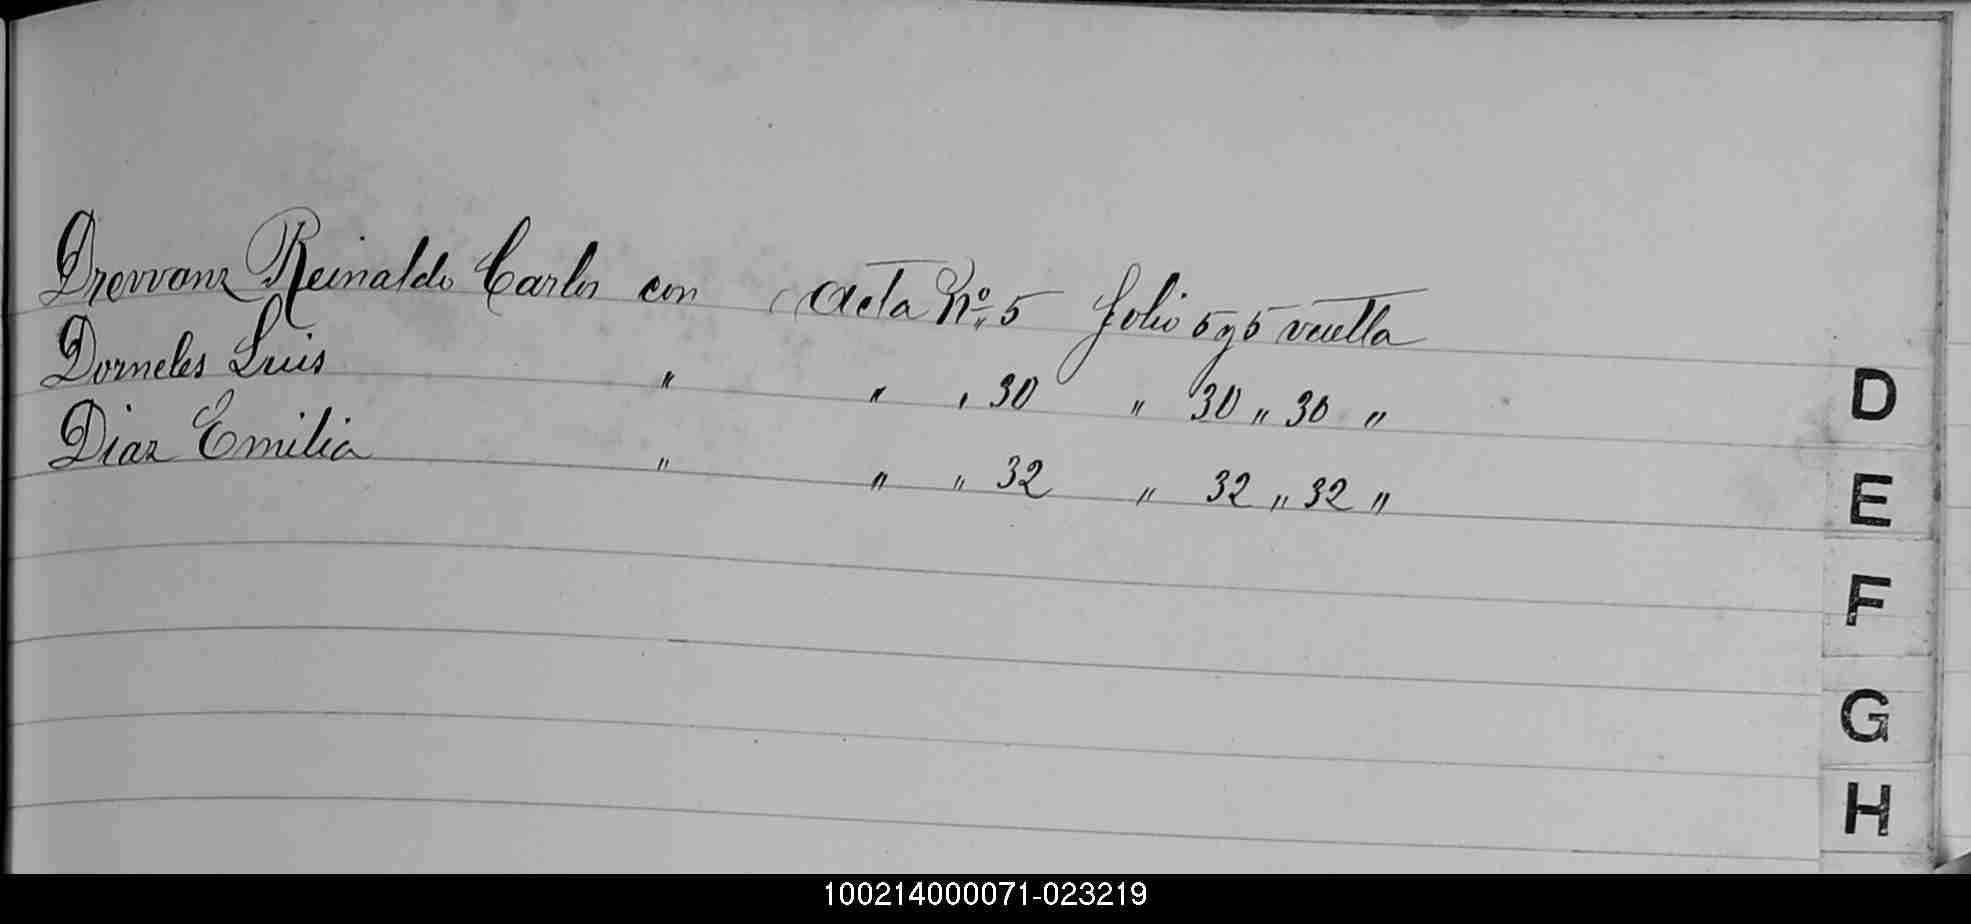 Drewanz Reinaldo Carlos con acta Nº 5 folio 5 y 5 vuelta
Dorneles Luis " " " 30 " 30 " 30 "
Diaz Emilia " " " 32 " 32 " 32 "
D
E
F
G
H
100214000071-023219